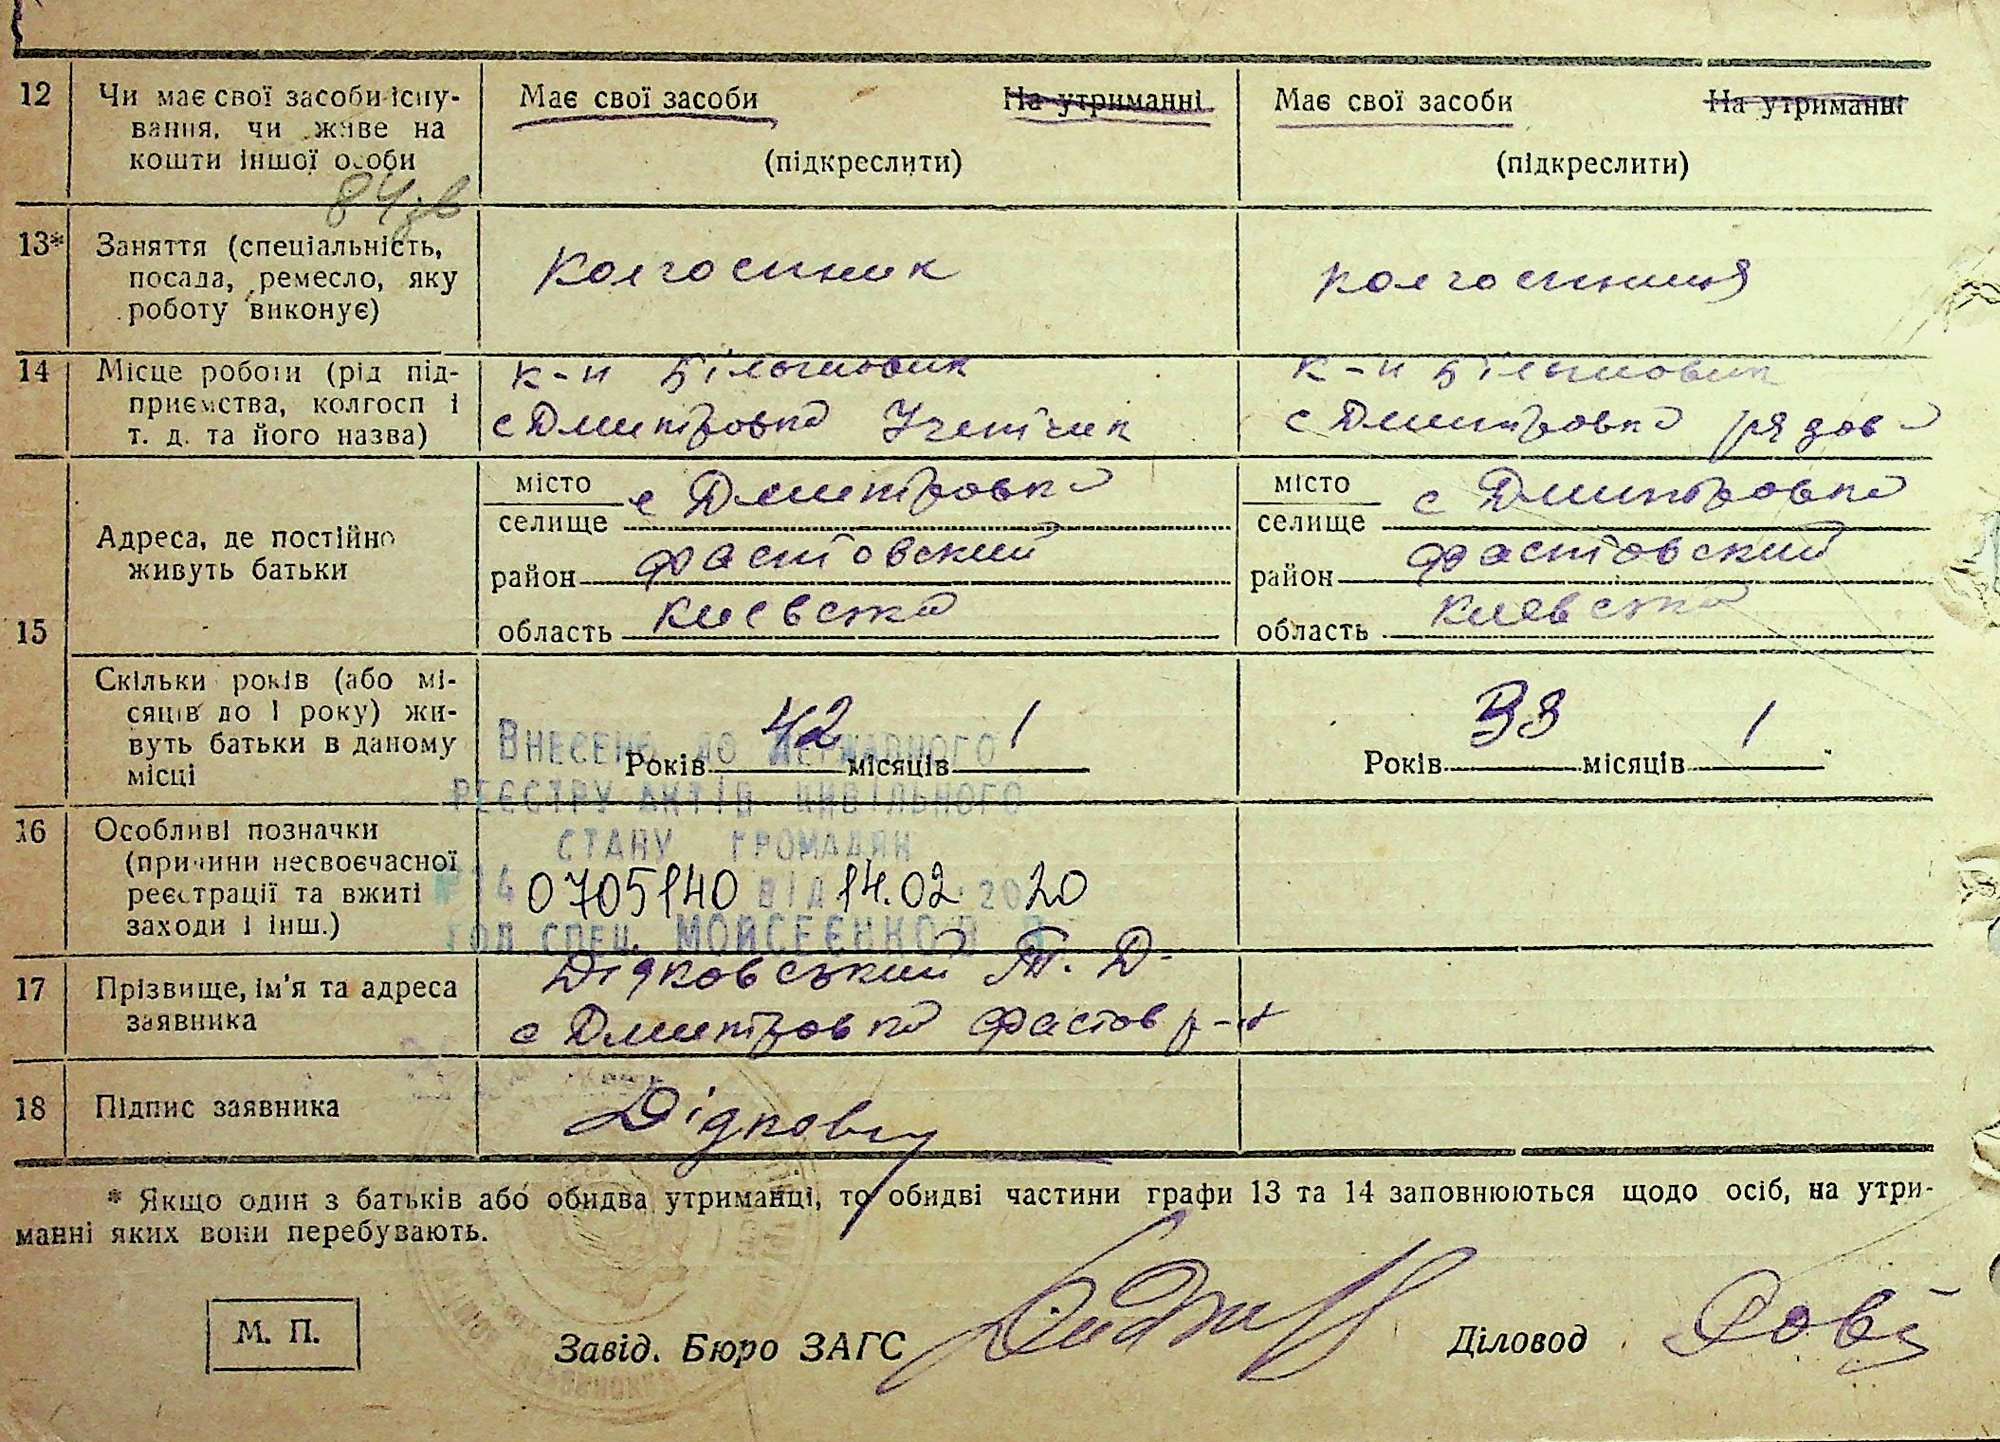 12 Чи має свої засоби існу-
вання, чи живе на
кошти іншої особи
Має свої засоби На утриманні
(підкреслити)
Має свої засоби На утриманні
(підкреслити)
84
13* Заняття (спеціальність,
посада, ремесло, яку
роботу виконує)
Колгоспник
колгоспниця
14 Місце роботи (рід під-
приємства, колгосп і
т. д. та його назва)
к-п Більшовик
с Дмитровка Учетчик
к-п Більшовик
с Дмитровка рядова
15 Адреса, де постійно
живуть батьки
місто
селище с Дмитровка
район Фастовский
область Киевська
місто
селище с Дмитровка
район Фастовский
область Киевська
Скільки років (або мі-
сяців до 1 року) жи-
вуть батьки в даному
місці
Років 42 місяців 1
Років 33 місяців 1
Внесено до Державного
реєстру актів цивільного
стану громадян
0705140 від 14.02.2020
16 Особливі позначки
(причини несвоєчасної
реєстрації та вжиті
заходи і інш.)
17 Прізвище, ім'я та адреса
заявника
Дідковський Т. Д.
с Дмитровка Фастов р-н
18 Підпис заявника
* Якщо один з батьків або обидва утриманці, то обидві частини графи 13 та 14 заповнюються щодо осіб, на утри-
манні яких вони перебувають.
М. П.
Завід. Бюро ЗАГС
Діловод